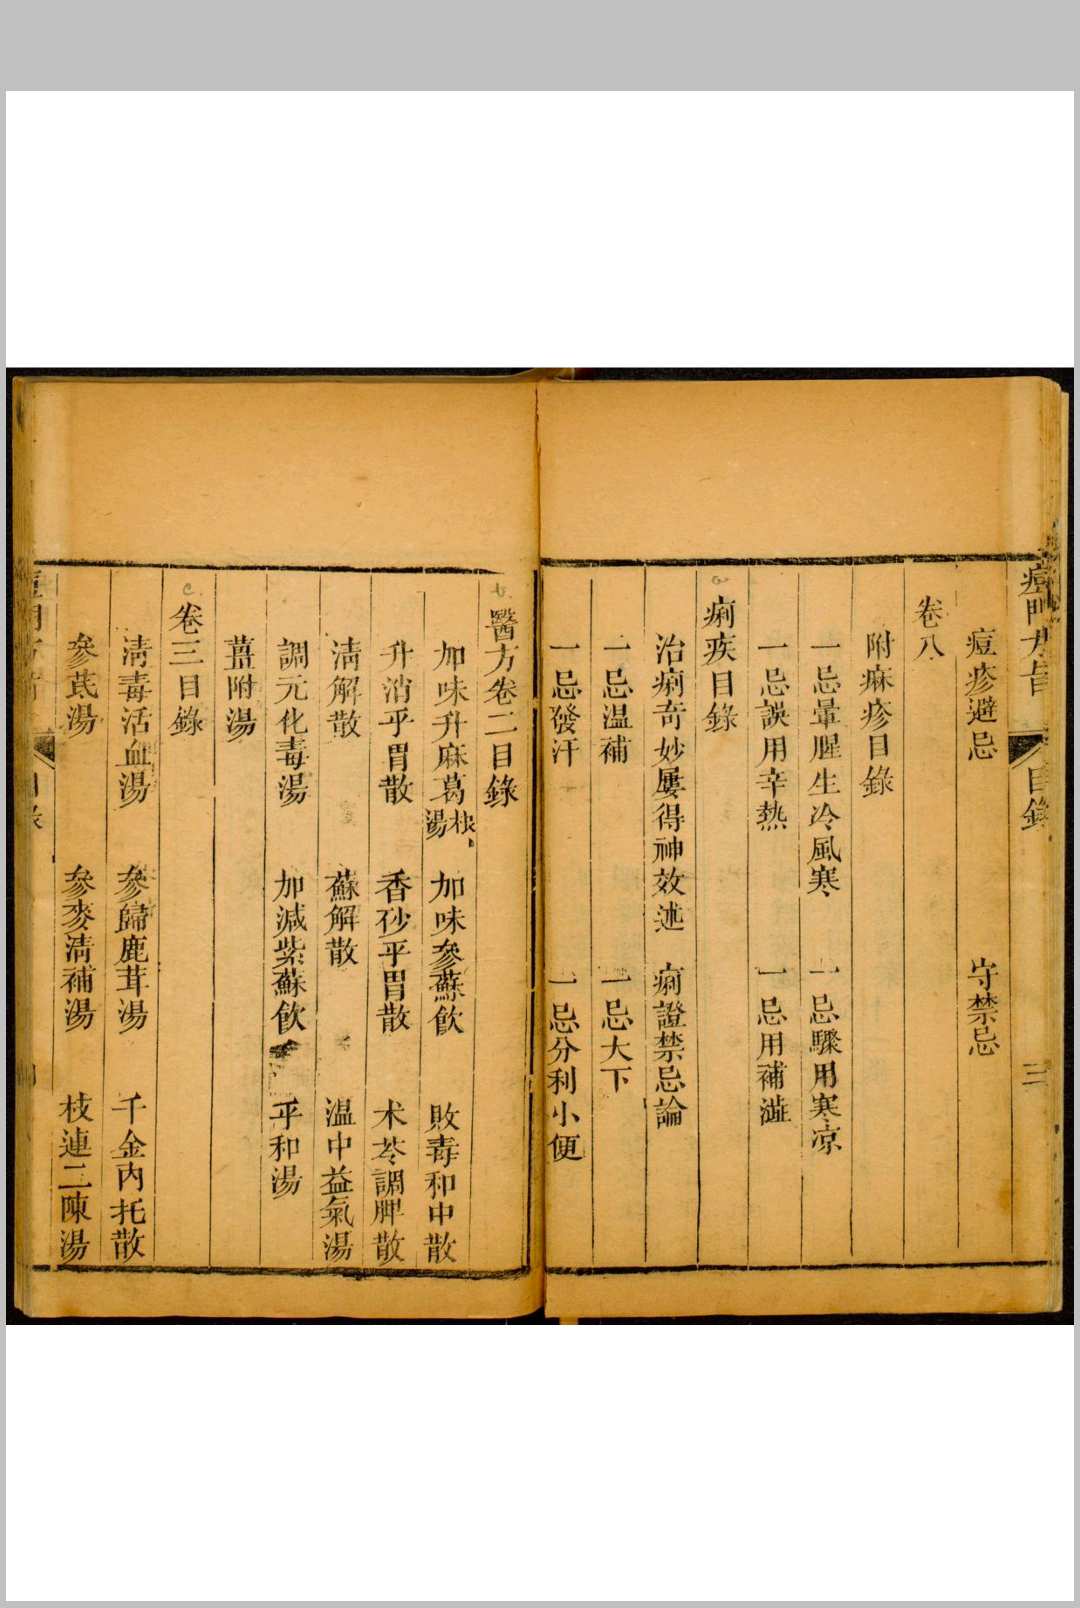 痘門方旨 目錄 三
痘疹避忌 守禁忌
卷八
附麻疹目錄
一忌暈腥生冷風寒 一忌驟用寒凉
一忌誤用辛熱 一忌用補澁
痢疾目錄
治痢奇妙屢得神效述 痢證禁忌論
一忌温補 一忌大下
一忌發汗 一忌分利小便
醫方卷二目錄
加味升麻葛根湯 加味參蘇飲 敗毒和中散
升消平胃散 香砂平胃散 术苓調脾散
清解散 蘇解散 温中益氣湯
調元化毒湯 加減紫蘇飲 平和湯
薑附湯
卷三目錄
清毒活血湯 參歸鹿茸湯 千金內托散
參茋湯 參麥清補湯 枝連二陳湯
目錄